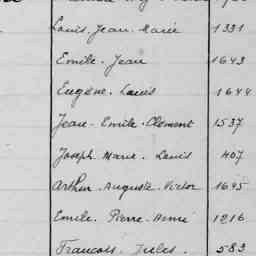 Louis. Jean. Marie 1331
Emile. Jean 1643
Eugène. Louis 1644
Jean. Emile. Clément 1537
Joseph. Marie. Louis 407
Arthur. Auguste. Victor 1645
Emile. Pierre. Aimé 1216
Francois. Jules. 583